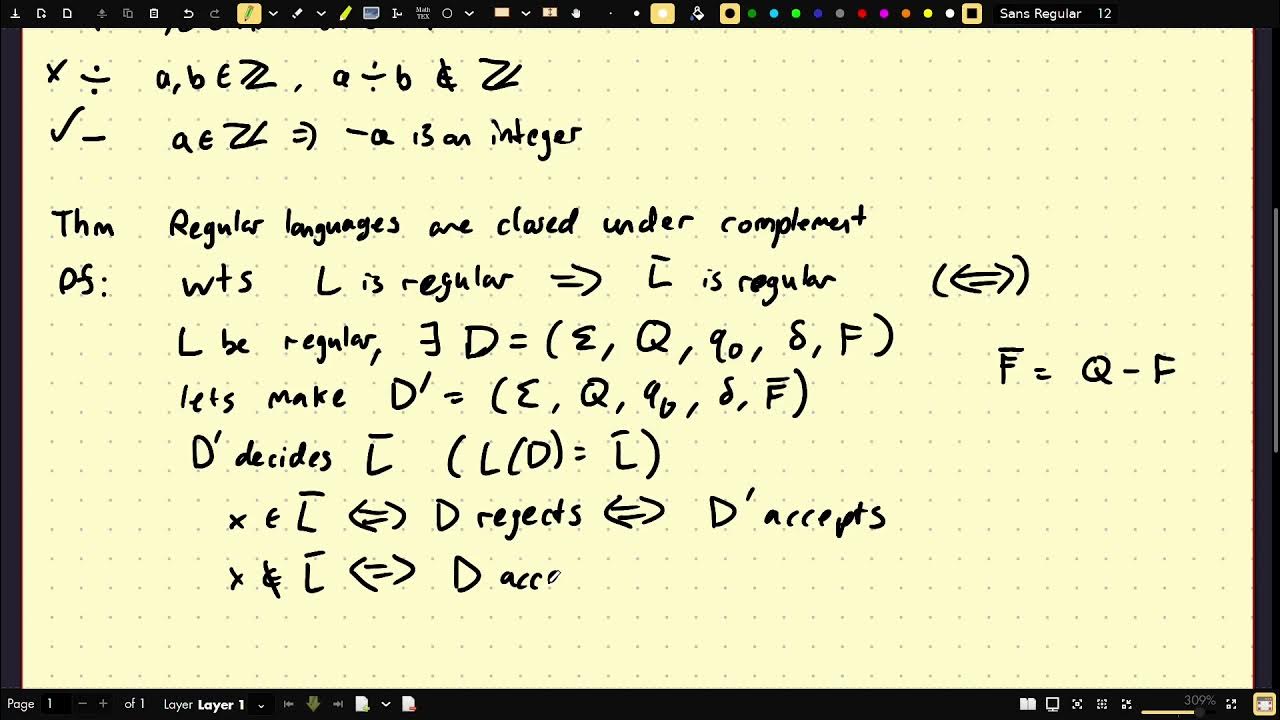 Math
TEX
Sans Regular 12
x ÷ a,b ∈ ℤ, a ÷ b ∉ ℤ
✓ − a ∈ ℤ ⇒ -a is an integer
Thm Regular languages are closed under complement
Pf: wts L is regular ⇒ L̅ is regular (⟺)
L be regular, ∃ D = (Σ, Q, q₀, δ, F)
F̅ = Q - F
lets make D' = (Σ, Q, q₀, δ, F̅)
D' decides L̅ (L(D) = L̅)
x ∈ L̅ ⟺ D rejects ⟺ D' accepts
x ∉ L̅ ⟺ D acc
Page 1 of 1 Layer Layer 1 309%